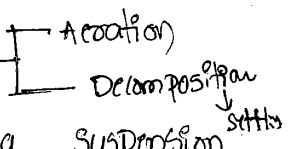 Aeroation
Decomposition
Settles
a Suspension